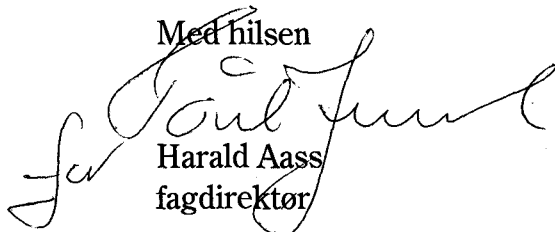 Med hilsen
for
Harald Aass
fagdirektør